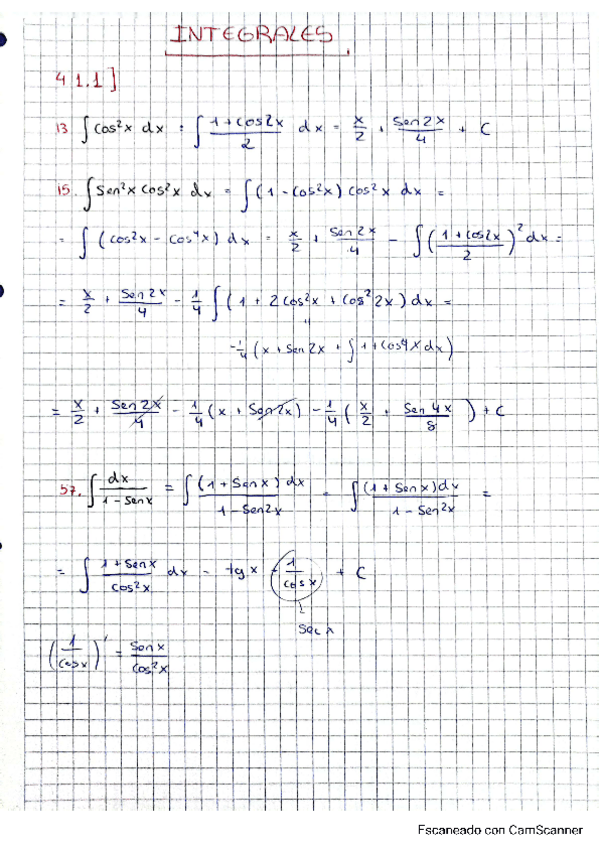 INTEGRALES
4 1.1]
13 ∫ cos²x dx = ∫ (1+cos2x)/2 dx = x/2 + Sen2x/4 + C
15. ∫ Sen²x cos²x dx = ∫ (1 - cos²x) cos²x dx =
= ∫ (cos²x - cos⁴x) dx = x/2 + Sen2x/4 - ∫ ((1+cos2x)/2)² dx =
= x/2 + Sen2x/4 - 1/4 ∫ (1 + 2cos2x + cos²2x) dx =
-1/4 (x + Sen2x + ∫ 1+cos4x dx)
= x/2 + Sen2x/4 - 1/4 (x + Sen2x) - 1/4 (x/2 + Sen4x/8) + C
57. ∫ dx/(1-Senx) = ∫ (1+Senx) dx/(1-Sen2x) = ∫ (1+Senx)dx/(1-Sen²x) =
= ∫ (1+Senx)/cos²x dx = tgx + 1/cosx + C
Sec x
(1/cosx)' = Senx/cos²x
Escaneado con CamScanner